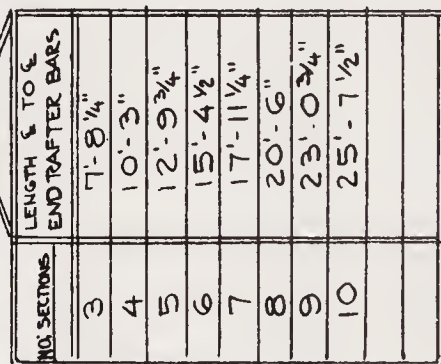 NO. SECTIONS LENGTH ℄ TO ℄
END RAFTER BARS
3 7'-8 1/4"
4 10'-3"
5 12'-9 3/4"
6 15'-4 1/2"
7 17'-11 1/4"
8 20'-6"
9 23'-0 3/4"
10 25'-7 1/2"